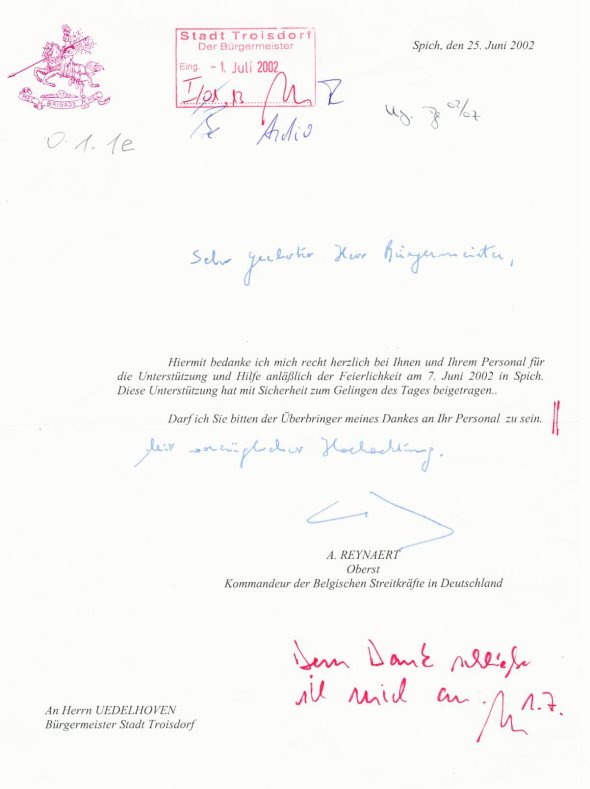 BRIGADE
Stadt Troisdorf
Der Bürgermeister
Eing. - 1. Juli 2002
Spich, den 25. Juni 2002
Archiv
02/07
0.1.1e
Sehr geehrter Herr Bürgermeister,
Hiermit bedanke ich mich recht herzlich bei Ihnen und Ihrem Personal für
die Unterstützung und Hilfe anläßlich der Feierlichkeit am 7. Juni 2002 in Spich.
Diese Unterstützung hat mit Sicherheit zum Gelingen des Tages beigetragen..
Darf ich Sie bitten der Überbringer meines Dankes an Ihr Personal zu sein.
Mit vorzüglicher Hochachtung.
A. REYNAERT
Oberst
Kommandeur der Belgischen Streitkräfte in Deutschland
Dem Dank schließe
ich mich an. 1.7.
An Herrn UEDELHOVEN
Bürgermeister Stadt Troisdorf